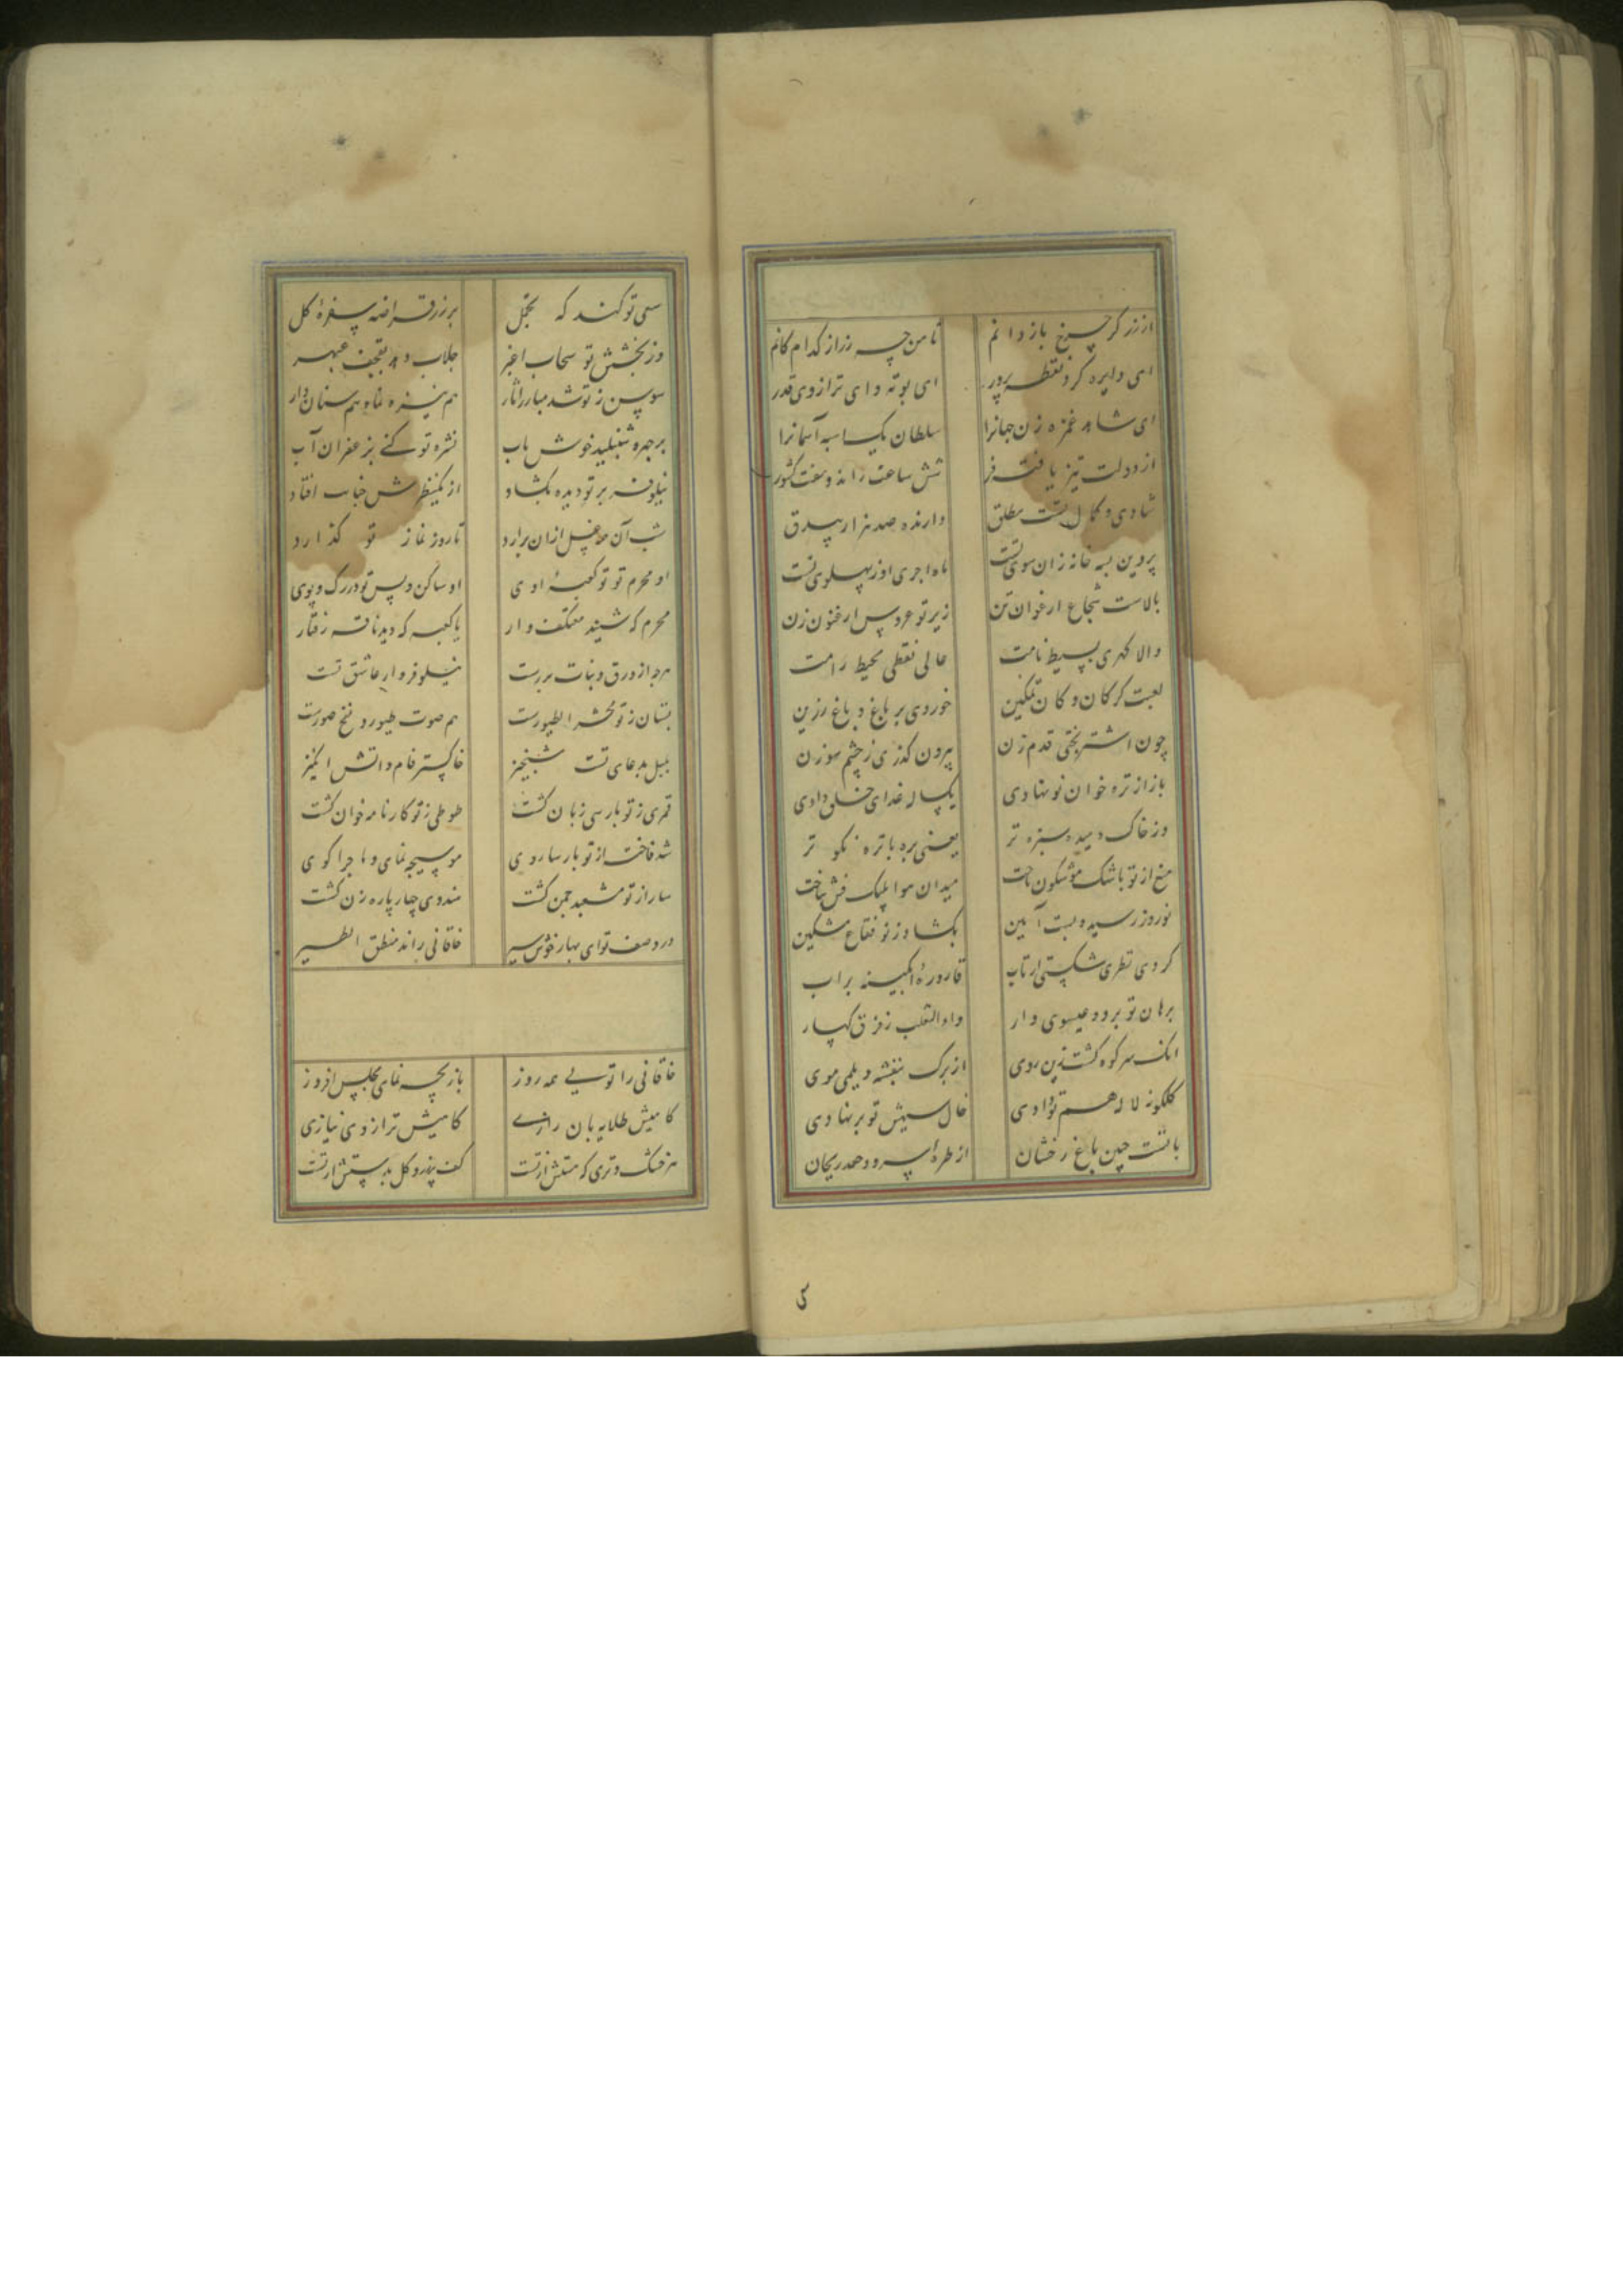 از زر گر چرخ باز دانم تا من چه زر از کدام کانم
ای دایره کرد نقطه پرور ای بوته و ای ترازوی قدر
ای شاهد غمزه زن جهانرا سلطان یک اسبه آسمانرا
از دولت تیز یافته فر شش ساعت رانده و هفت کشور
شادی و کمال تست مطلق دارنده صد هزار بیدق
پروین بسه خانه زان سوی تست ماه اجری او ز پهلوی تست
بالاست شجاع ارغوان تن زیر تو عروس ارغنون زن
والا کهری بسیط نامت عالی نقطی محیط رامت
لعبت کر کان و کان تمکین خوردی بر باغ و باغ رزین
چون اشتر بختی قدم زن بیرون کذری ز چشم سوزن
باز از تره خوان نو نهادی یکساله غدای خلق دادی
وز خاک دمیده سبزه تر یعنی بره با تره نکو تر
میغ از تو باشک موشکون تاخت میدان هوا پلنک فش ساخت
نوروز رسید و بست آیین بکشاد ز تو فقاع مشکین
کردی نظری شکستی از تاب قاروره آبکینه بر آب
برهان تو برد و عیسوی وار داء الثعلب ز فرق کهسار
آنک سر کوه کشت زین روی از برک بنفشه دیلمی موی
کلکونه لاله هم تو دادی خال سیهش تو بر نهادی
بافتست چین باغ رخشان از طره سرو و جعد ریحان
سعی تو کند که تجمل بر زر قراضه سفره کل
وز بخشش تو سحاب اغبر جلاب دهد بقحف عبهر
سوسن ز تو شد مبارز آثار هم نیزه نما و هم سنان دار
بر چهره شنبلید خوش باب نشره تو کنی بزعفران آب
نیلوفر بر تو دیده بکشاد از یکنظرش جنابت افتاد
شب آن مه غسل ازان برارد تا روز نماز تو کذارد
او محرم تو تو کعبه اوی او ساکن و پس تو در رک و پوی
محرم که شنید معتکف وار یا کعبه که دید ناقه رفتار
هرچ از ورق و نبات بررست نیلوفر وار عاشق تست
بستان ز تو محشر الطیورست هم صوت طیور و نفخ صورست
بلبل بدعای تست شبخیز خاکستر فام و اتش انکیز
قمری ز تو بارسی زبان کشت طوطی ز تو کارنامه خوان کشت
شد فاخته از تو بارسا روی موسیجه نمای و ماجرا کوی
سار از تو مشعبد چمن کشت هندوی چهارپاره زن کشت
در وصف تو ای بهار خوش سیر خاقانی راند منطق الطیر
خاقانی را تویی همه روز بازیچه نمای مجلس افروز
کامیش طلایه بان رازی کامیش ترازوی نیازی
هر خشک و تری که هستش از تست کف پنبرو کل بدستش از تست